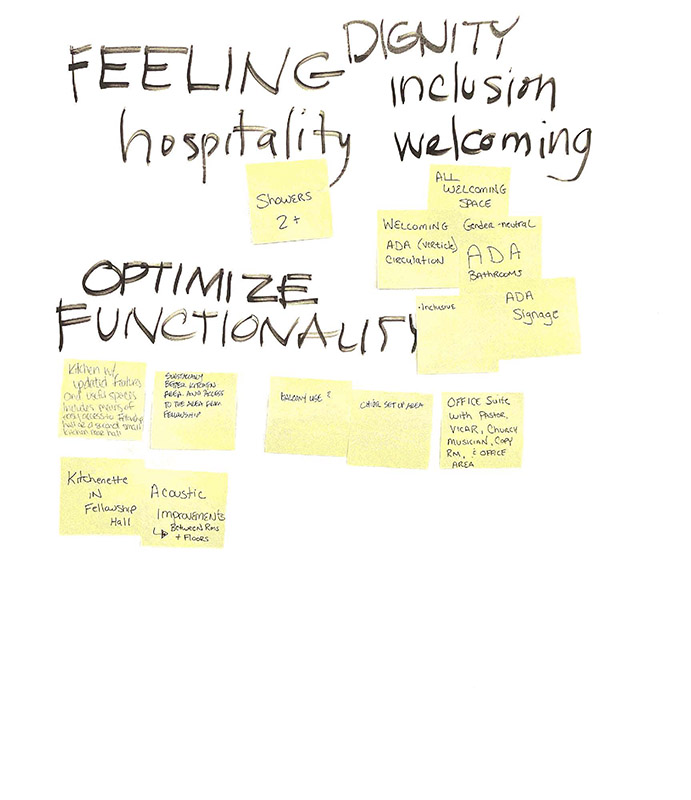 FEELING DIGNITY
inclusion
hospitality welcoming
SHOWERS
2+
ALL
WELCOMING
SPACE
WELCOMING
ADA (VERTICLE)
CIRCULATION
Gender-neutral
ADA
BATHROOMS
·Inclusive
ADA
Signage
OPTIMIZE
FUNCTIONALITY
Kitchen w/
updated features
and useful spaces
Includes means of
easy access to fellowship
hall or a second small
kitchen near hall
BETTER KITCHEN
AREA AND ACCESS
TO THE AREA FROM
FELLOWSHIP
BALCONY USE?
CHOIR SET UP AREA
OFFICE SUITE
WITH PASTOR,
VICAR, CHURCH
MUSICIAN, COPY
RM, & OFFICE
AREA
Kitchenette
IN
Fellowship
Hall
Acoustic
Improvements
↳ Between Rms
+ Floors